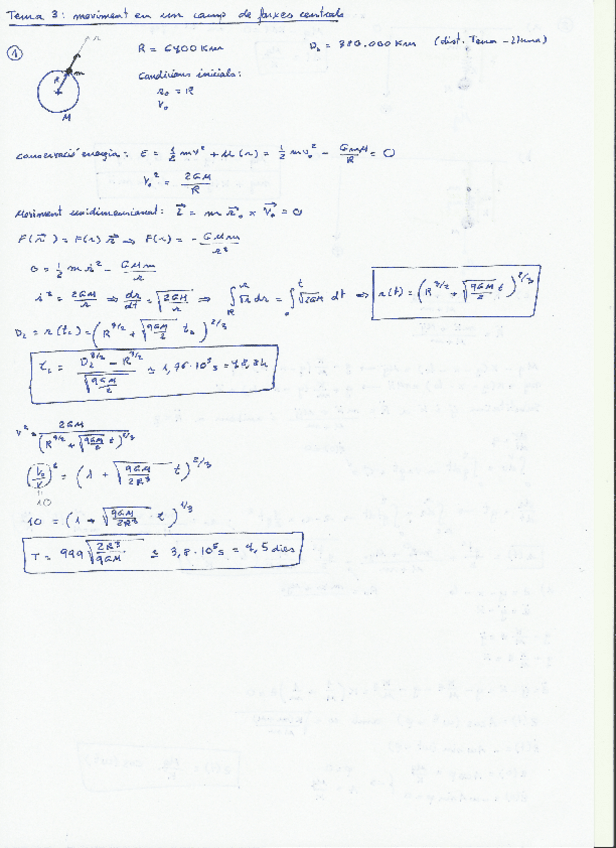 Tema 3: moviment en un camp de forces centrals
① R = 6400 Km D_L = 380.000 Km (dist. Terra - Lluna)
Condicions inicials:
r_0 = R
v_0
r
m
R
M
Conservació energia: E = 1/2 mv² + U(r) = 1/2 mv_0² - GMm/R = 0
v_0² = 2GM/R
Moviment unidimensional: L⃗ = m r⃗_0 × v⃗_0 = 0
F(r⃗) = F(r) r⃗ ⇒ F(r) = - GMm/r²
0 = 1/2 m ṙ² - GMm/r
ṙ² = 2GM/r ⇒ dr/dt = √(2GM/r) ⇒ ∫_R^r √r dr = ∫_0^t √(2GM) dt ⇒ r(t) = (R^{3/2} + √(9GM/2) t)^{2/3}
D_L = r(t_L) = (R^{3/2} + √(9GM/2) t_L)^{2/3}
t_L = (D_L^{3/2} - R^{3/2}) / √(9GM/2) ≃ 1,76·10⁵ s = 48,8h
v² = 2GM / (R^{3/2} + √(9GM/2) t)^{2/3}
(v_0/v)² = (1 + √(9GM/2R³) t)^{2/3}
10
10 = (1 + √(9GM/2R³) t)^{1/3}
T = 999 √(2R³/9GM) ≃ 3,8·10⁵ s = 4,5 dies